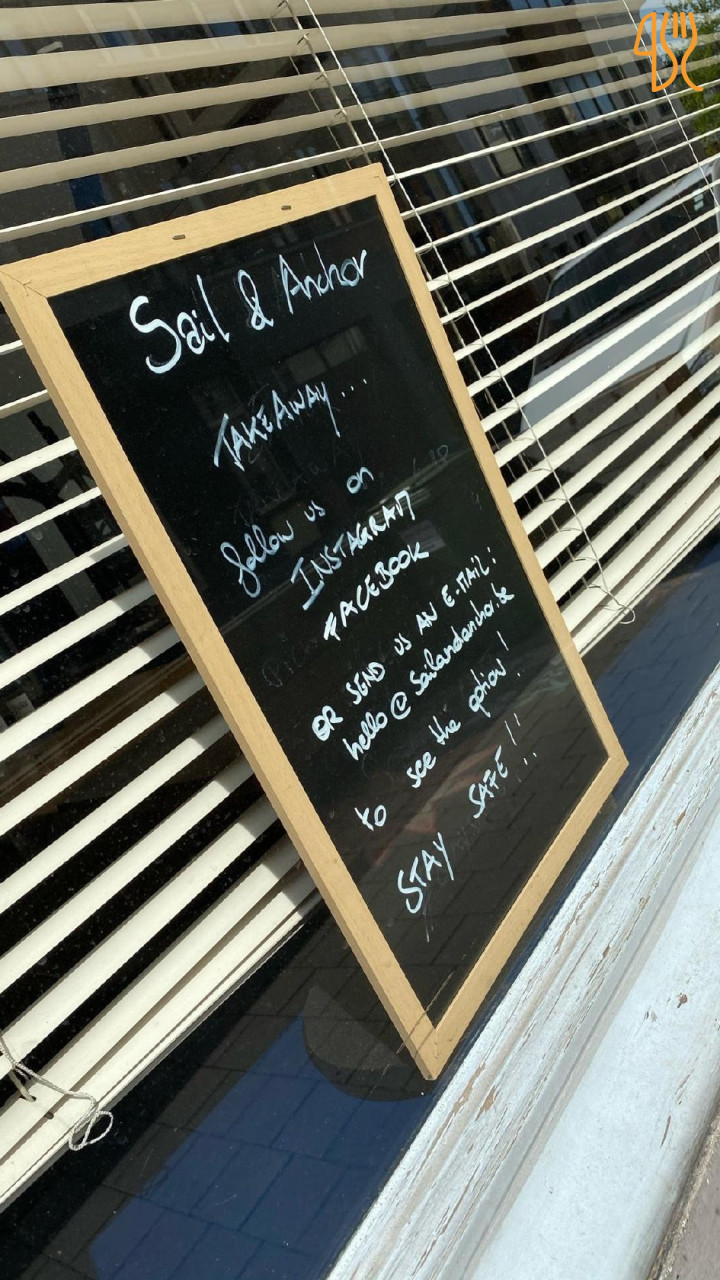 Sail & Anchor
TAKEAWAY...
follow us on
INSTAGRAM
FACEBOOK
OR SEND US AN E-MAIL:
hello@sailandanchor.be
to see the option!
STAY SAFE!!